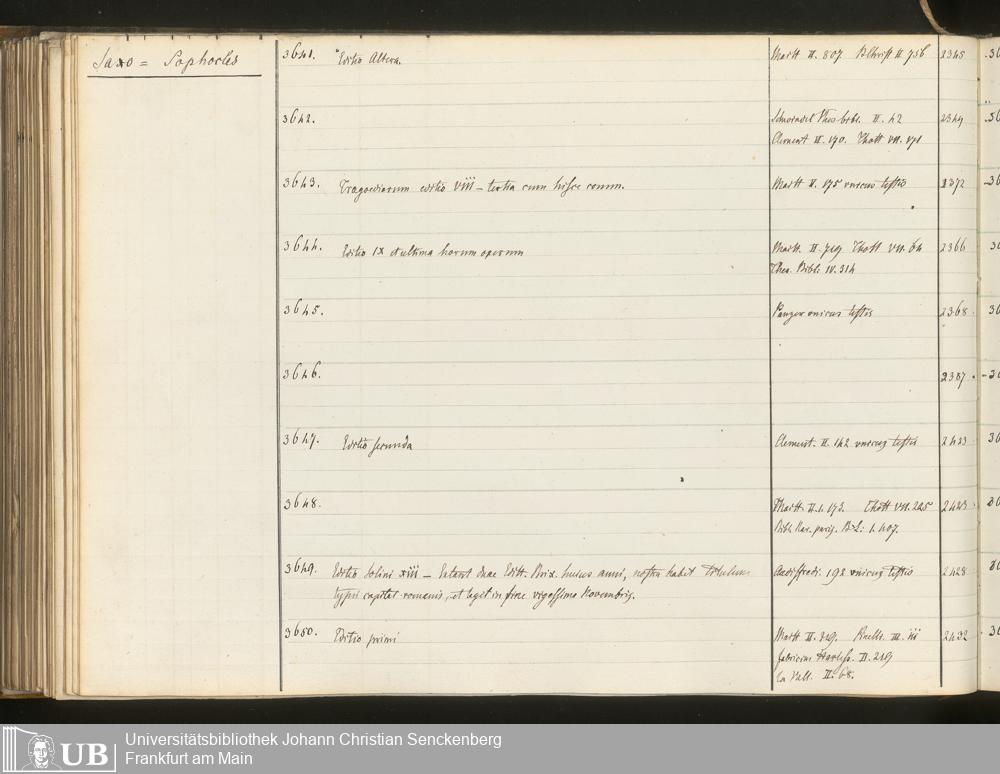 Saxo = Sophocles
3641. Editio Altera. Maitt II. 807. B Christ II 756 2345
3642. Theos bibl. II. 42 2349
Clement II. 170. Thott VII. 171
3643. Tragoediarum editio VIII – tertia cum hisce comm. Maitt V. 175 unicus testis 2372
3644. Editio IX et ultima horum operum Maitt. II. 719 Thott VII. 64 2366
Thea. Bibl. IV. 314
3645. Panzer unicus testis 2368
3646. 2387
3647. Editio secunda Clement. II. 142 unicus testis 2423
3648. Maitt. II. 1. 173. Thott VII. 225 2423
Bibl. Rar. 1. 407.
3649. Editio Solini XIII – Extant duae Editt. huius anni, nostra habet titulum unicus testis 2428
typis capital romanis, et legit in fine vigessimo Novembris.
3650. Editio primi Maitt II. 319. III. 2432
Fabricius II. 219
La Vall. II. 68.
UB
Universitätsbibliothek Johann Christian Senckenberg
Frankfurt am Main